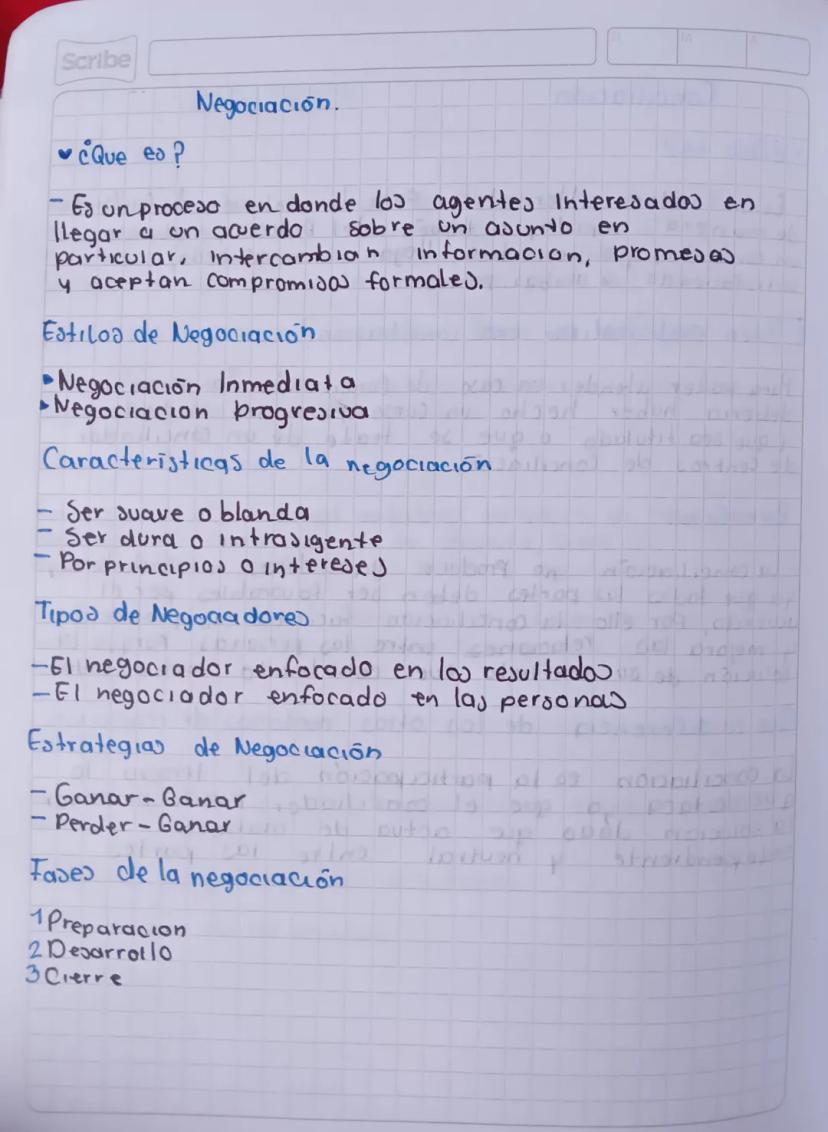 Scribe
Negociación.
¿Que es?
- Es un proceso en donde los agentes interesados en
llegar a un acuerdo sobre un asunto en
particular, intercambian informacion, promesas
y aceptan compromisos formales.
Estilos de Negociación
Negociación Inmediata
Negociacion progresiva
Características de la negociación
- Ser suave o blanda
- Ser dura o intrasigente
- Por principios o intereses
Tipos de Negociadores
- El negociador enfocado en los resultados
- El negociador enfocado en las personas
Estrategias de Negociación
- Ganar - Ganar
- Perder - Ganar
Fases de la negociación
1 Preparacion
2 Desarrollo
3 Cierre